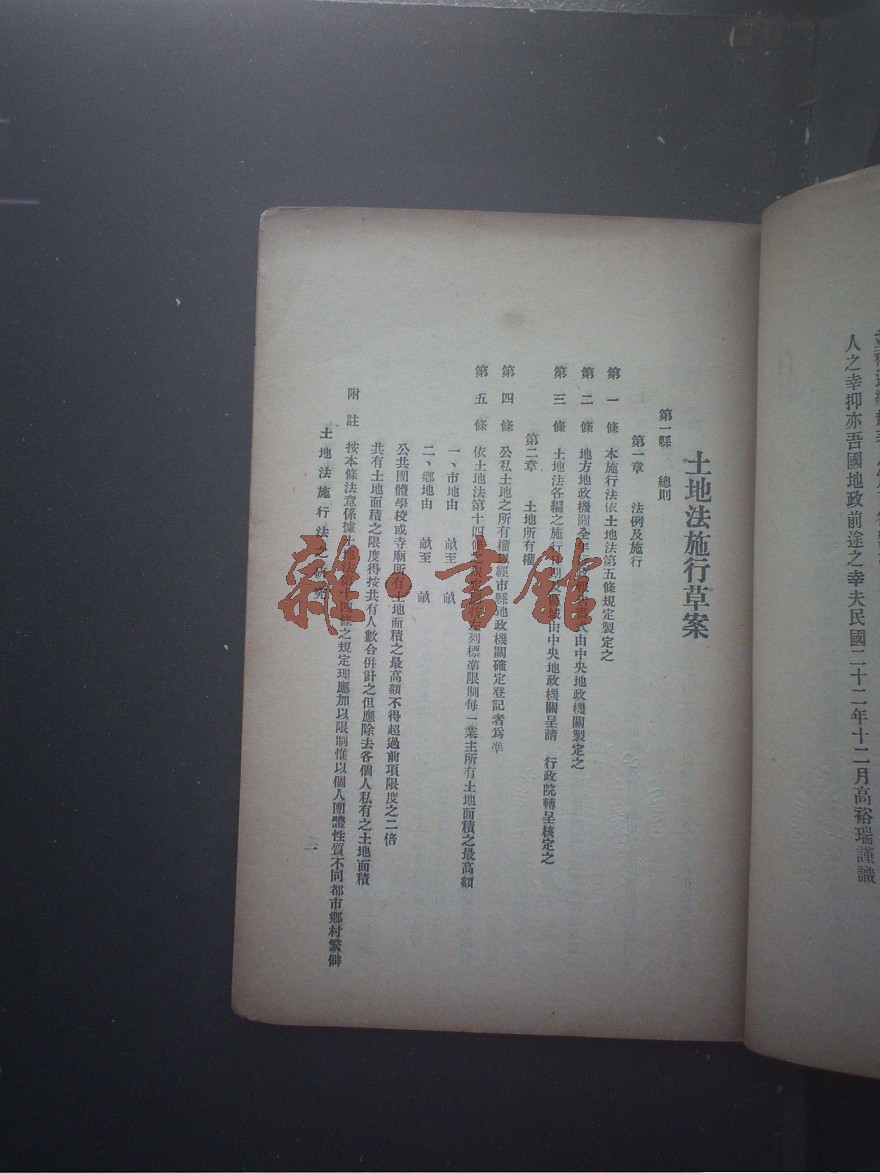 人之幸抑亦吾國地政前途之幸夫民國二十二年十二月高裕瑞謹識
土地法施行草案
第一縣　總則
第一章　法例及施行
第一條　本施行法依土地法第五條規定製定之
第二條　地方地政機關全年　式由中央地政機關製定之
第三條　土地法各編之施行　由中央地政機關呈請　行政院轉呈核定之
第二章　土地所有權
第四條　公私土地之所有權　經市縣地政機關確定登記者爲準
第五條　依土地法第十四條之　列標準限制每一業主所有土地面積之最高額
一、市地由　畝至　畝
二、鄉地由　畝至　畝
公共團體學校或寺廟所有土地面積之最高額不得超過前項限度之二倍
共有土地面積之限度得按共有人數合併計之但應除去各個人私有之土地面積
附註　按本條法意係據土地法第十四條之規定理應加以限制惟以個人團體性質不同都市鄉村繁僻
土地法施行法之研究
一
雜·書館